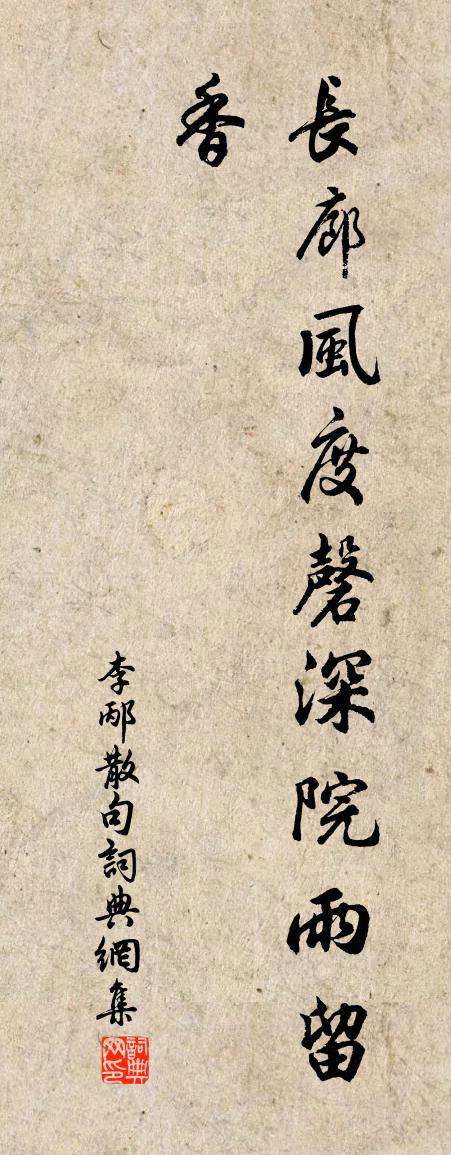 長廊風度磬深院雨留
香
李邴散句詞典網集
詞典
网印